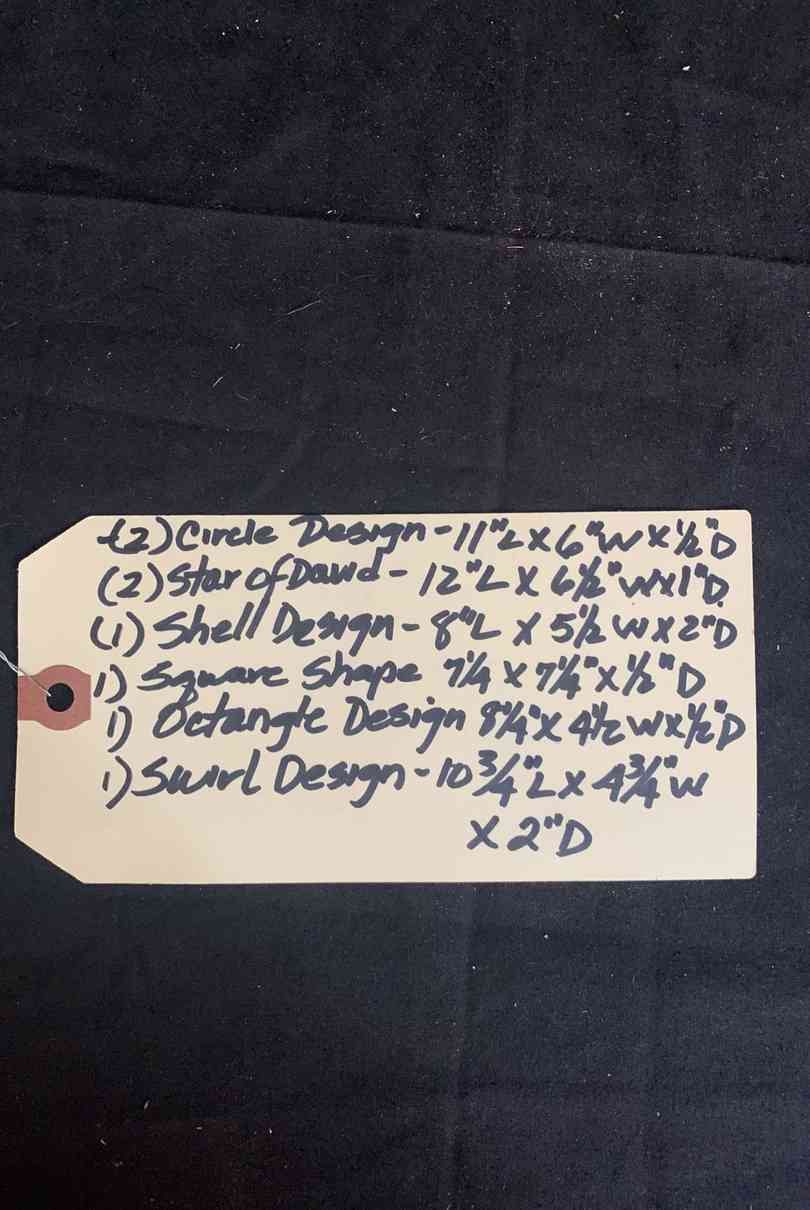 (2) Circle Design - 11"L X 6"W X 1/2"D
(2) Star of David - 12"L X 6 1/2"W X 1"D
(1) Shell Design - 8"L X 5 1/2 W X 2"D
1) Square Shape 7 1/4 X 7 1/4" X 1/2"D
1) Octangle Design 8 1/4" X 4 1/2 W X 1/2"D
1) Swirl Design - 10 3/4"L X 4 3/4"W
X 2"D